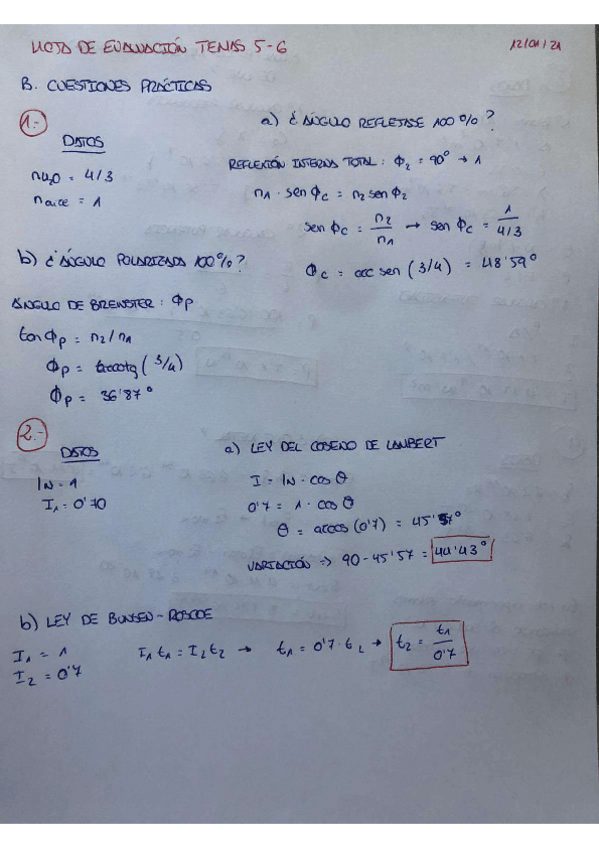 HOJA DE EVALUACIÓN TEMAS 5-6
12/01/21
B. CUESTIONES PRÁCTICAS
1.-
DATOS
nH₂O = 4/3
naire = 1
a) ¿ÁNGULO REFLEJASE 100%?
REFLEXIÓN INTERNA TOTAL: Φ₂ = 90° → 1
n₁ · sen Φc = n₂ sen Φ₂
sen Φc = n₂/n₁ → sen Φc = 1/(4/3)
Φc = arc sen (3/4) = 48'59°
b) ¿ÁNGULO POLARIZADA 100%?
ÁNGULO DE BREWSTER: Φp
tan Φp = n₂/n₁
Φp = arcotg (3/4)
Φp = 36'87°
2.-
DATOS
IN = 1
I₁ = 0'70
a) LEY DEL COSENO DE LAMBERT
I = IN · cos θ
0'7 = 1 · cos θ
θ = arcos (0'7) = 45'57°
VARIACIÓN => 90 - 45'57 = 44'43°
b) LEY DE BUNSEN-ROSCOE
I₁ = 1
I₂ = 0'7
I₁ t₁ = I₂ t₂ → t₁ = 0'7 · t₂ → t₂ = t₁/0'7